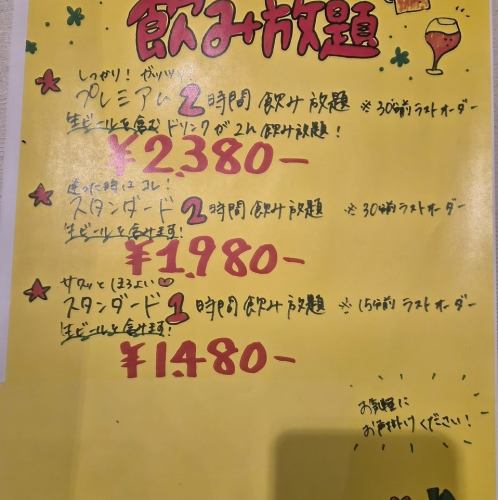 飲み放題
しっかり! ガッツリ
プレミアム 2時間 飲み放題 ※30分前ラストオーダー
生ビールを含むドリンクが2h飲み放題!
¥2,380-
迷った時はコレ!
スタンダード 2時間飲み放題 ※30分前ラストオーダー
生ビールも含みます!
¥1,980-
サクッとほろよい♡
スタンダード 1時間飲み放題 ※15分前ラストオーダー
生ビールも含みます!
¥1,480-
お気軽に
お声掛けください!